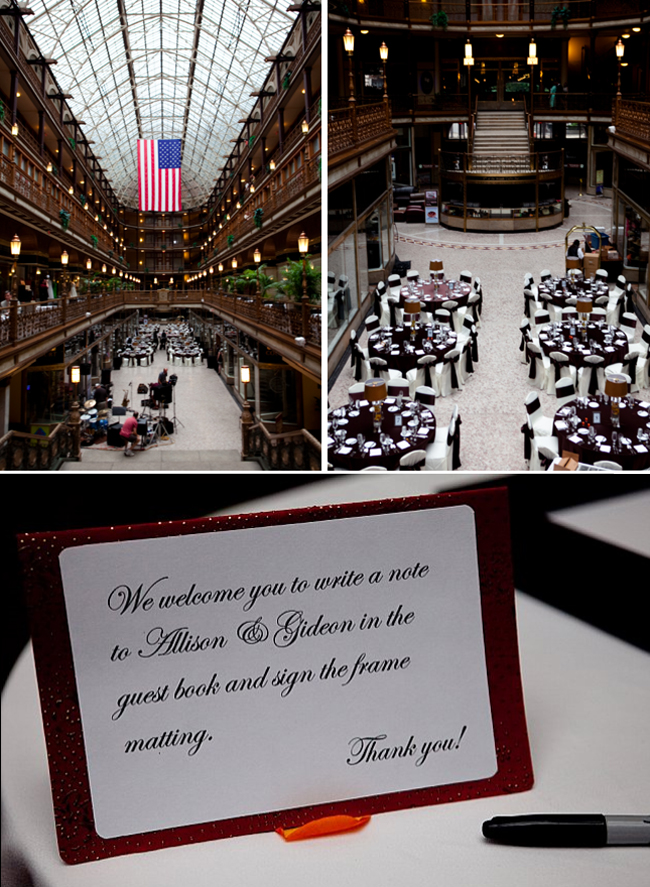 We welcome you to write a note
to Allison & Gideon in the
guest book and sign the frame
matting.
Thank you!